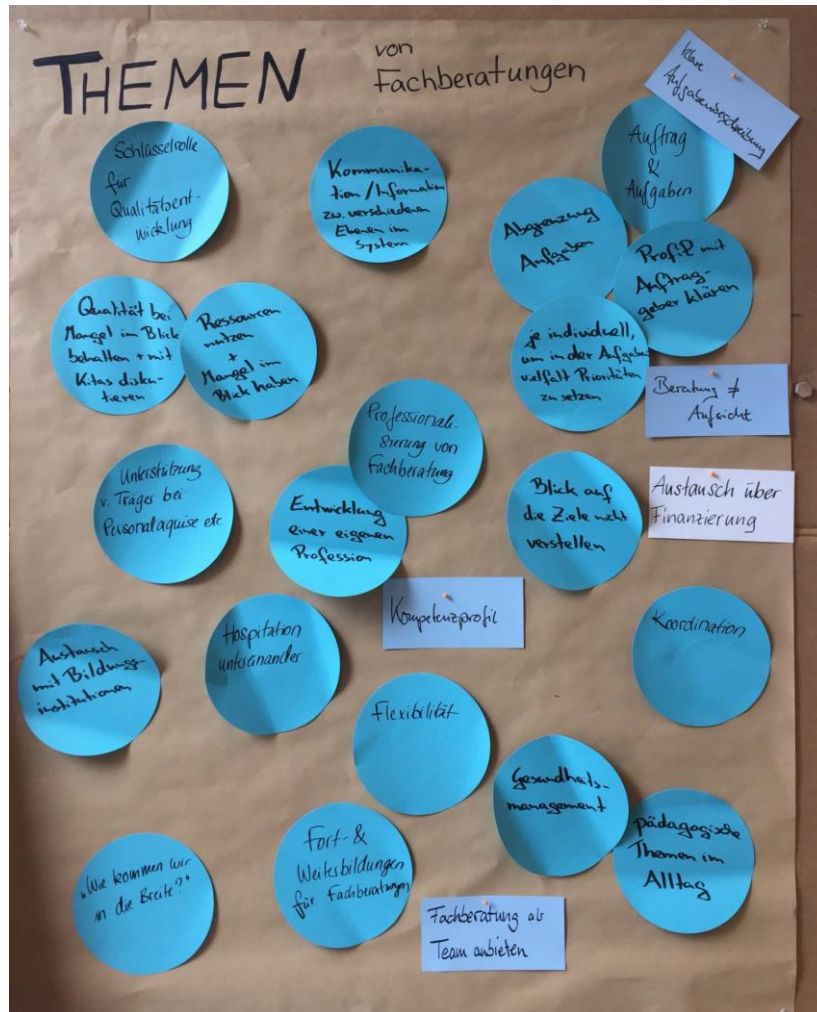 THEMEN
von
Fachberatungen
klare
Aufgabenbeschreibung
Schlüsselrolle
für
Qualitätsent-
wicklung
Kommunika-
tion / Information
zw. verschiedenen
Ebenen im
System
Auftrag
&
Aufgaben
Abgrenzung
Aufgaben
Profil mit
Auftrag-
geber klären
Qualität bei
Mangel im Blick
behalten + mit
Kitas disku-
tieren
Ressourcen
nutzen
+
Mangel im
Blick haben
je individuell,
um in der Aufgaben
vielfalt Prioritäten
zu setzen
Beratung ≠
Aufsicht
Professionali-
sierung von
Fachberatung
Unterstützung
v. Träger bei
Personalaquise etc.
Entwicklung
einer eigenen
Profession
Blick auf
die Ziele nicht
verstellen
Austausch über
Finanzierung
Kompetenzprofil
Austausch
mit Bildungs-
institutionen
Hospitation
untereinander
Koordination
Flexibilität
Gesundheits-
management
pädagogische
Themen im
Alltag
„Wie kommen wir
in die Breite?"
Fort- &
Weiterbildungen
für Fachberatungen
Fachberatung als
Team anbieten